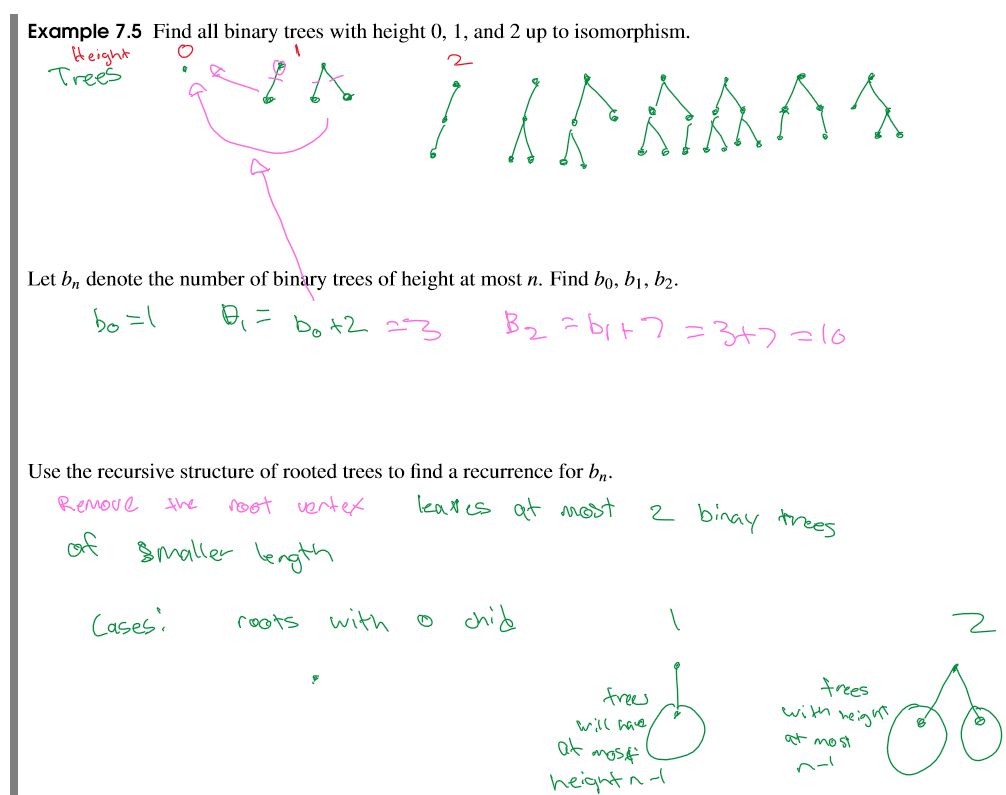 Example 7.5 Find all binary trees with height 0, 1, and 2 up to isomorphism.
Height 0 1 2
Trees
Let bₙ denote the number of binary trees of height at most n. Find b₀, b₁, b₂.
b₀ = 1 B₁ = b₀ + 2 = 3 B₂ = b₁ + 7 = 3 + 7 = 10
Use the recursive structure of rooted trees to find a recurrence for bₙ.
Remove the root vertex leaves at most 2 binay trees
of smaller length
Cases: roots with 0 child 1 2
trees
will have
at most
height n-1
trees
with height
at most
n-1